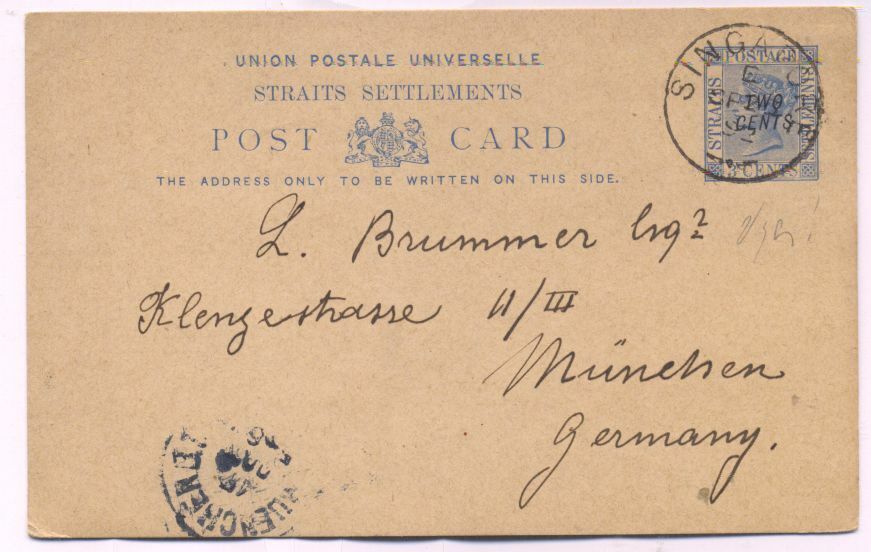 UNION POSTALE UNIVERSELLE
STRAITS SETTLEMENTS
POST CARD
THE ADDRESS ONLY TO BE WRITTEN ON THIS SIDE.
SINGA
POSTAGE
STRAITS
TWO
CENTS
3 CENTS
L. Brummer Esqr
Klenzestrasse 11/III
München
Germany.